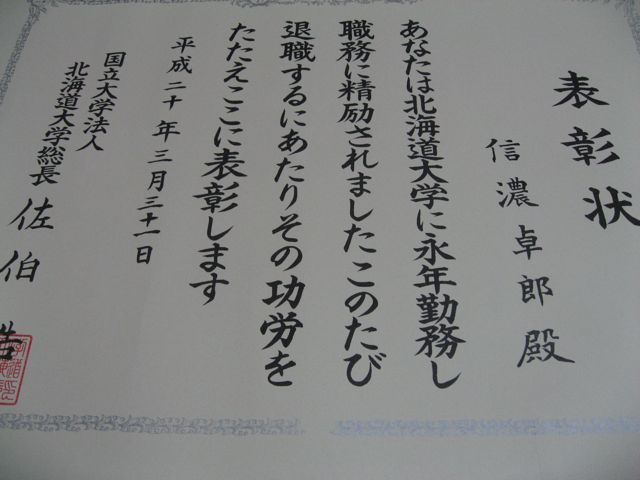 表彰状
信濃卓郎殿
あなたは北海道大学に永年勤務し
職務に精励されましたこのたび
退職するにあたりその功労を
たたえここに表彰します
平成二十年三月三十一日
国立大学法人
北海道大学総長
佐伯浩